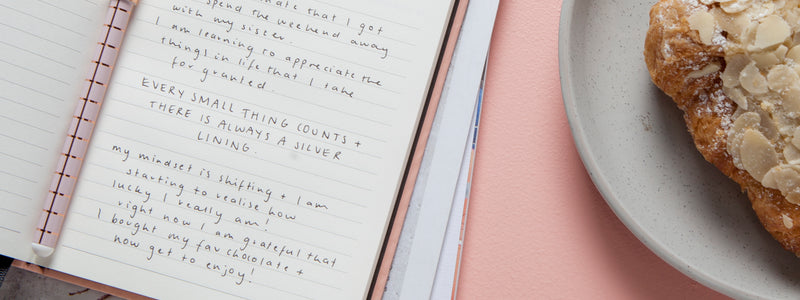 that I got
spend the weekend away
with my sister.
I am learning to appreciate the
things in life that I take
for granted.
EVERY SMALL THING COUNTS +
THERE IS ALWAYS A SILVER
LINING.
my mindset is shifting + I am
starting to realise how
lucky I really am!
right now I am grateful that
I bought my fav chocolate +
now get to enjoy!